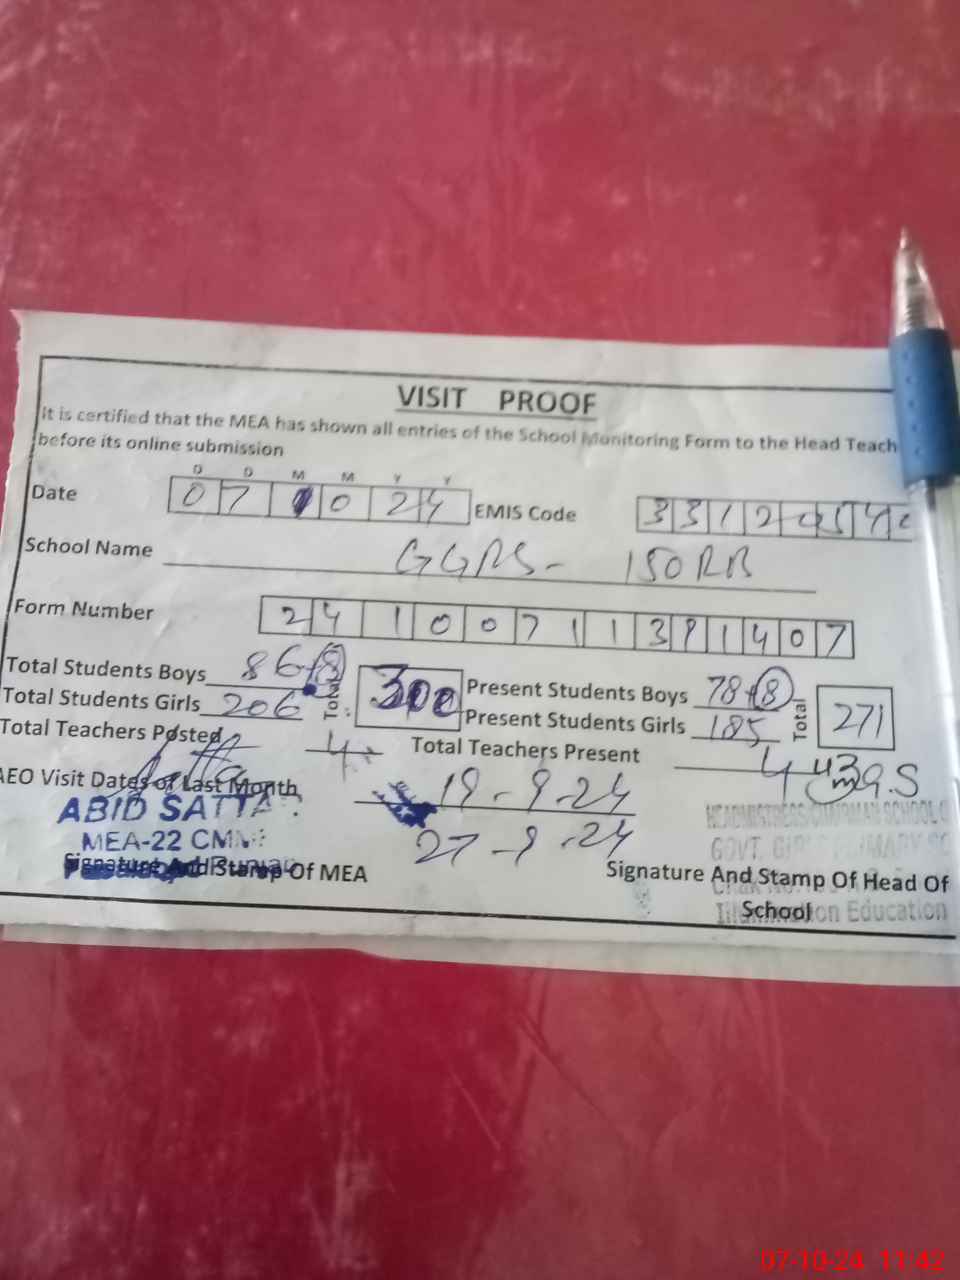 VISIT PROOF
It is certified that the MEA has shown all entries of the School Monitoring Form to the Head Teach
before its online submission
D D M M Y Y
Date 07 10 24 EMIS Code 33120
School Name GGPS- 150RB
Form Number 24 100711391407
Total Students Boys 86+8 Total 300 Present Students Boys 78+8 Total 271
Total Students Girls 206 Present Students Girls 185
Total Teachers Posted 4 Total Teachers Present 4
AEO Visit Dates of Last Month 19-9-24
27-9-24
ABID SATTAR
MEA-22 CM
Signature And Stamp Of MEA
HEADMISTRESS/CHAIRMAN SCHOOL C
GOVT. GIRL PRIMARY SC
Signature And Stamp Of Head Of
School
Education
07-10-24 11:42